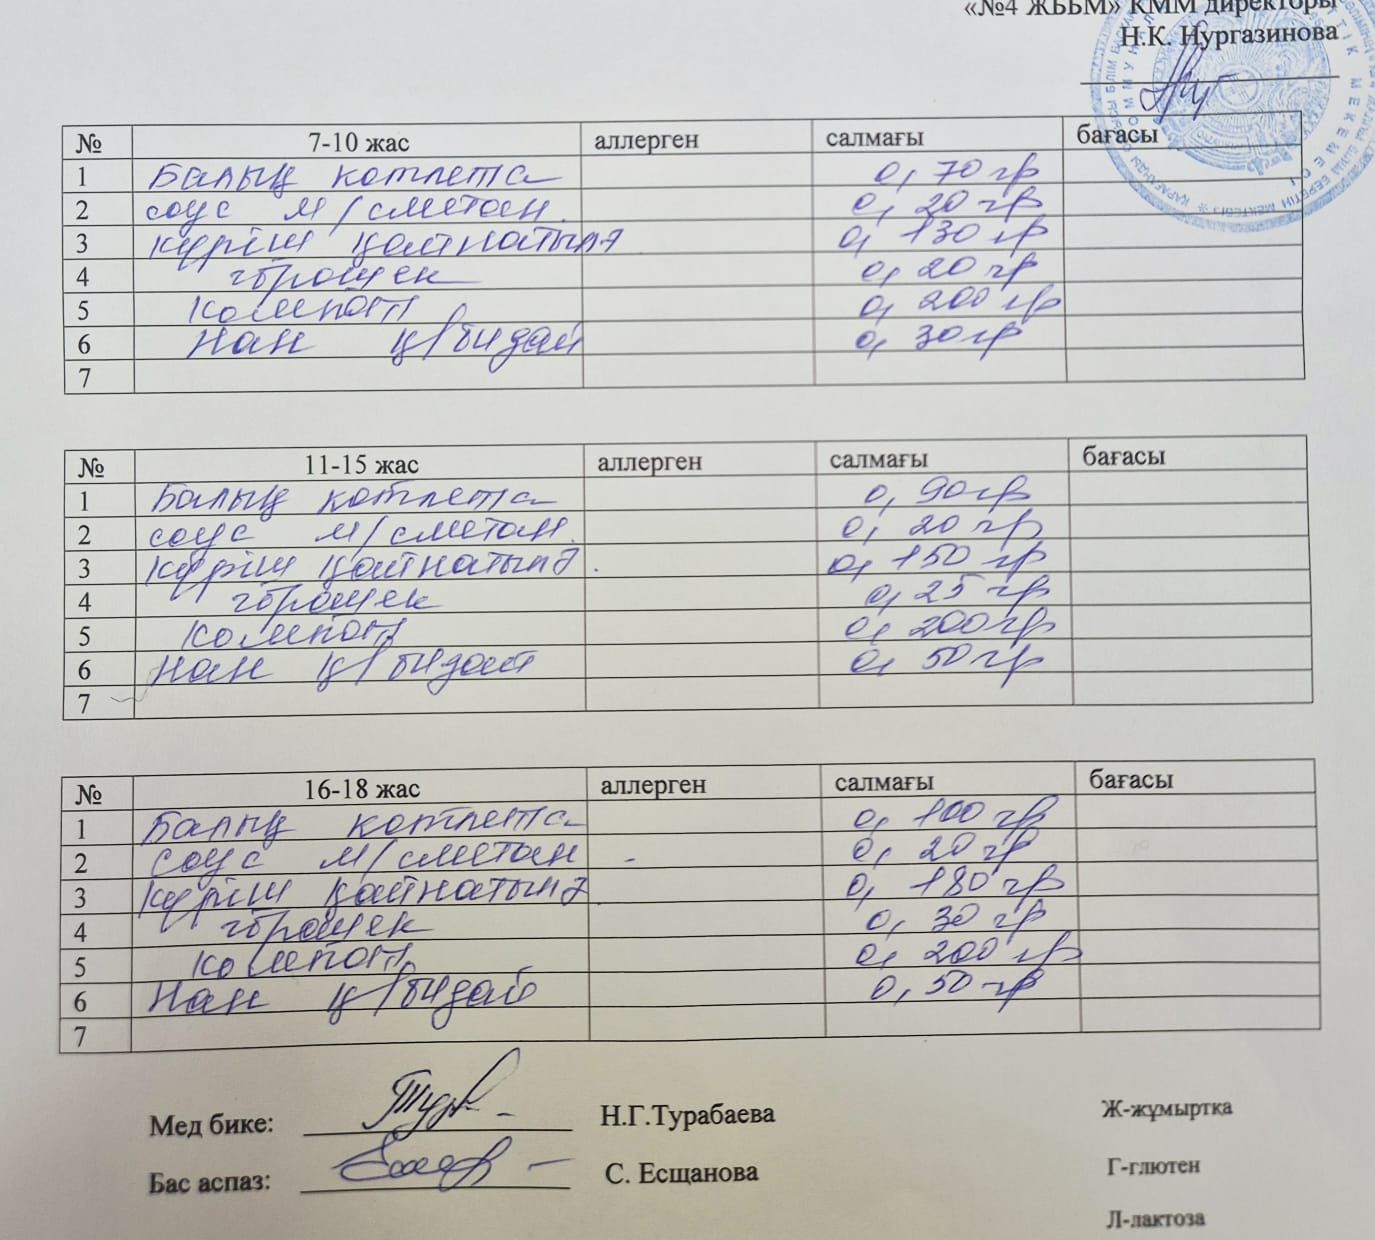 «№4 ЖББМ» КММ директоры
Н.К. Нургазинова
№ 7-10 жас аллерген салмағы бағасы
1 Балық котлета 0,70 гр
2 соус м/сметан. 0,20 гр
3 күріш қайнатылғ 0,130 гр
4 горошек 0,20 гр
5 Компот 0,200 гр
6 Нан қ/бидай 0,30 гр
7
№ 11-15 жас аллерген салмағы бағасы
1 Балық котлета 0,90 гр
2 соус м/сметан. 0,20 гр
3 күріш қайнатылғ. 0,150 гр
4 горошек 0,25 гр
5 Компот 0,200 гр
6 Нан қ/бидай 0,50 гр
7
№ 16-18 жас аллерген салмағы бағасы
1 Балық котлета 0,100 гр
2 соус м/сметан - 0,20 гр
3 күріш қайнатылғ. 0,180 гр
4 горошек 0,30 гр
5 Компот 0,200 гр
6 Нан қ/бидай 0,50 гр
7
Мед бике: Н.Г.Турабаева Ж-жұмыртқа
Бас аспаз: С. Есщанова Г-глютен
Л-лактоза